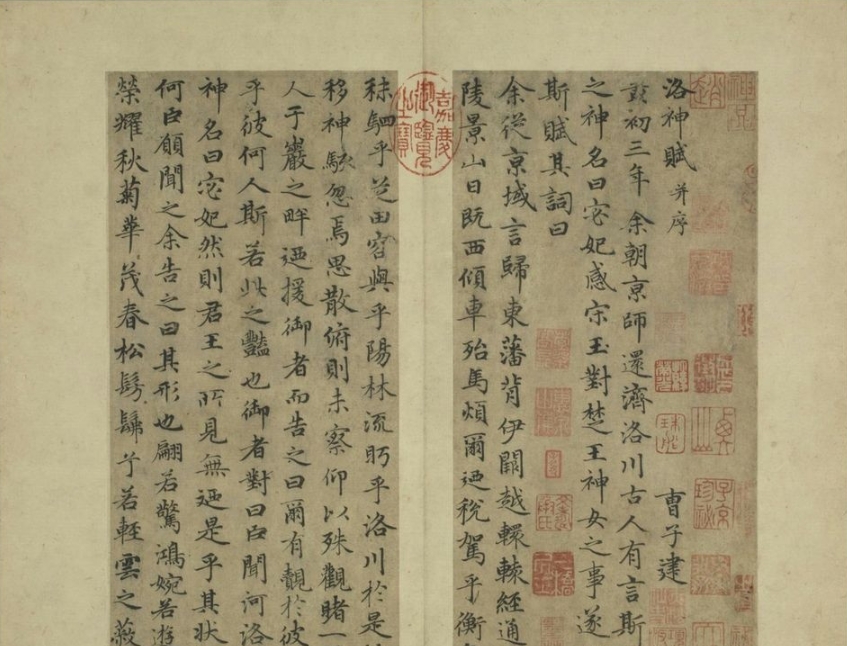 洛神賦 并序 曹子建
黃初三年余朝京師還濟洛川古人有言斯
之神名曰宓妃感宋玉對楚王神女之事遂
斯賦其詞曰
余從京域言歸東藩背伊闕越轘轅經通
陵景山日既西傾車殆馬煩爾迺稅駕乎衡
秣駟乎芝田容與乎陽林流眄乎洛川於是
移神駭忽焉思散俯則未察仰以殊觀睹一
人于巖之畔迺援御者而告之曰爾有覿於彼
乎彼何人斯若此之豔也御者對曰臣聞河洛
神名曰宓妃然則君王之所見無迺是乎其狀
何臣願聞之余告之曰其形也翩若驚鴻婉若游
榮耀秋菊華茂春松髣髴兮若輕雲之蔽
嘉慶御覽之寶